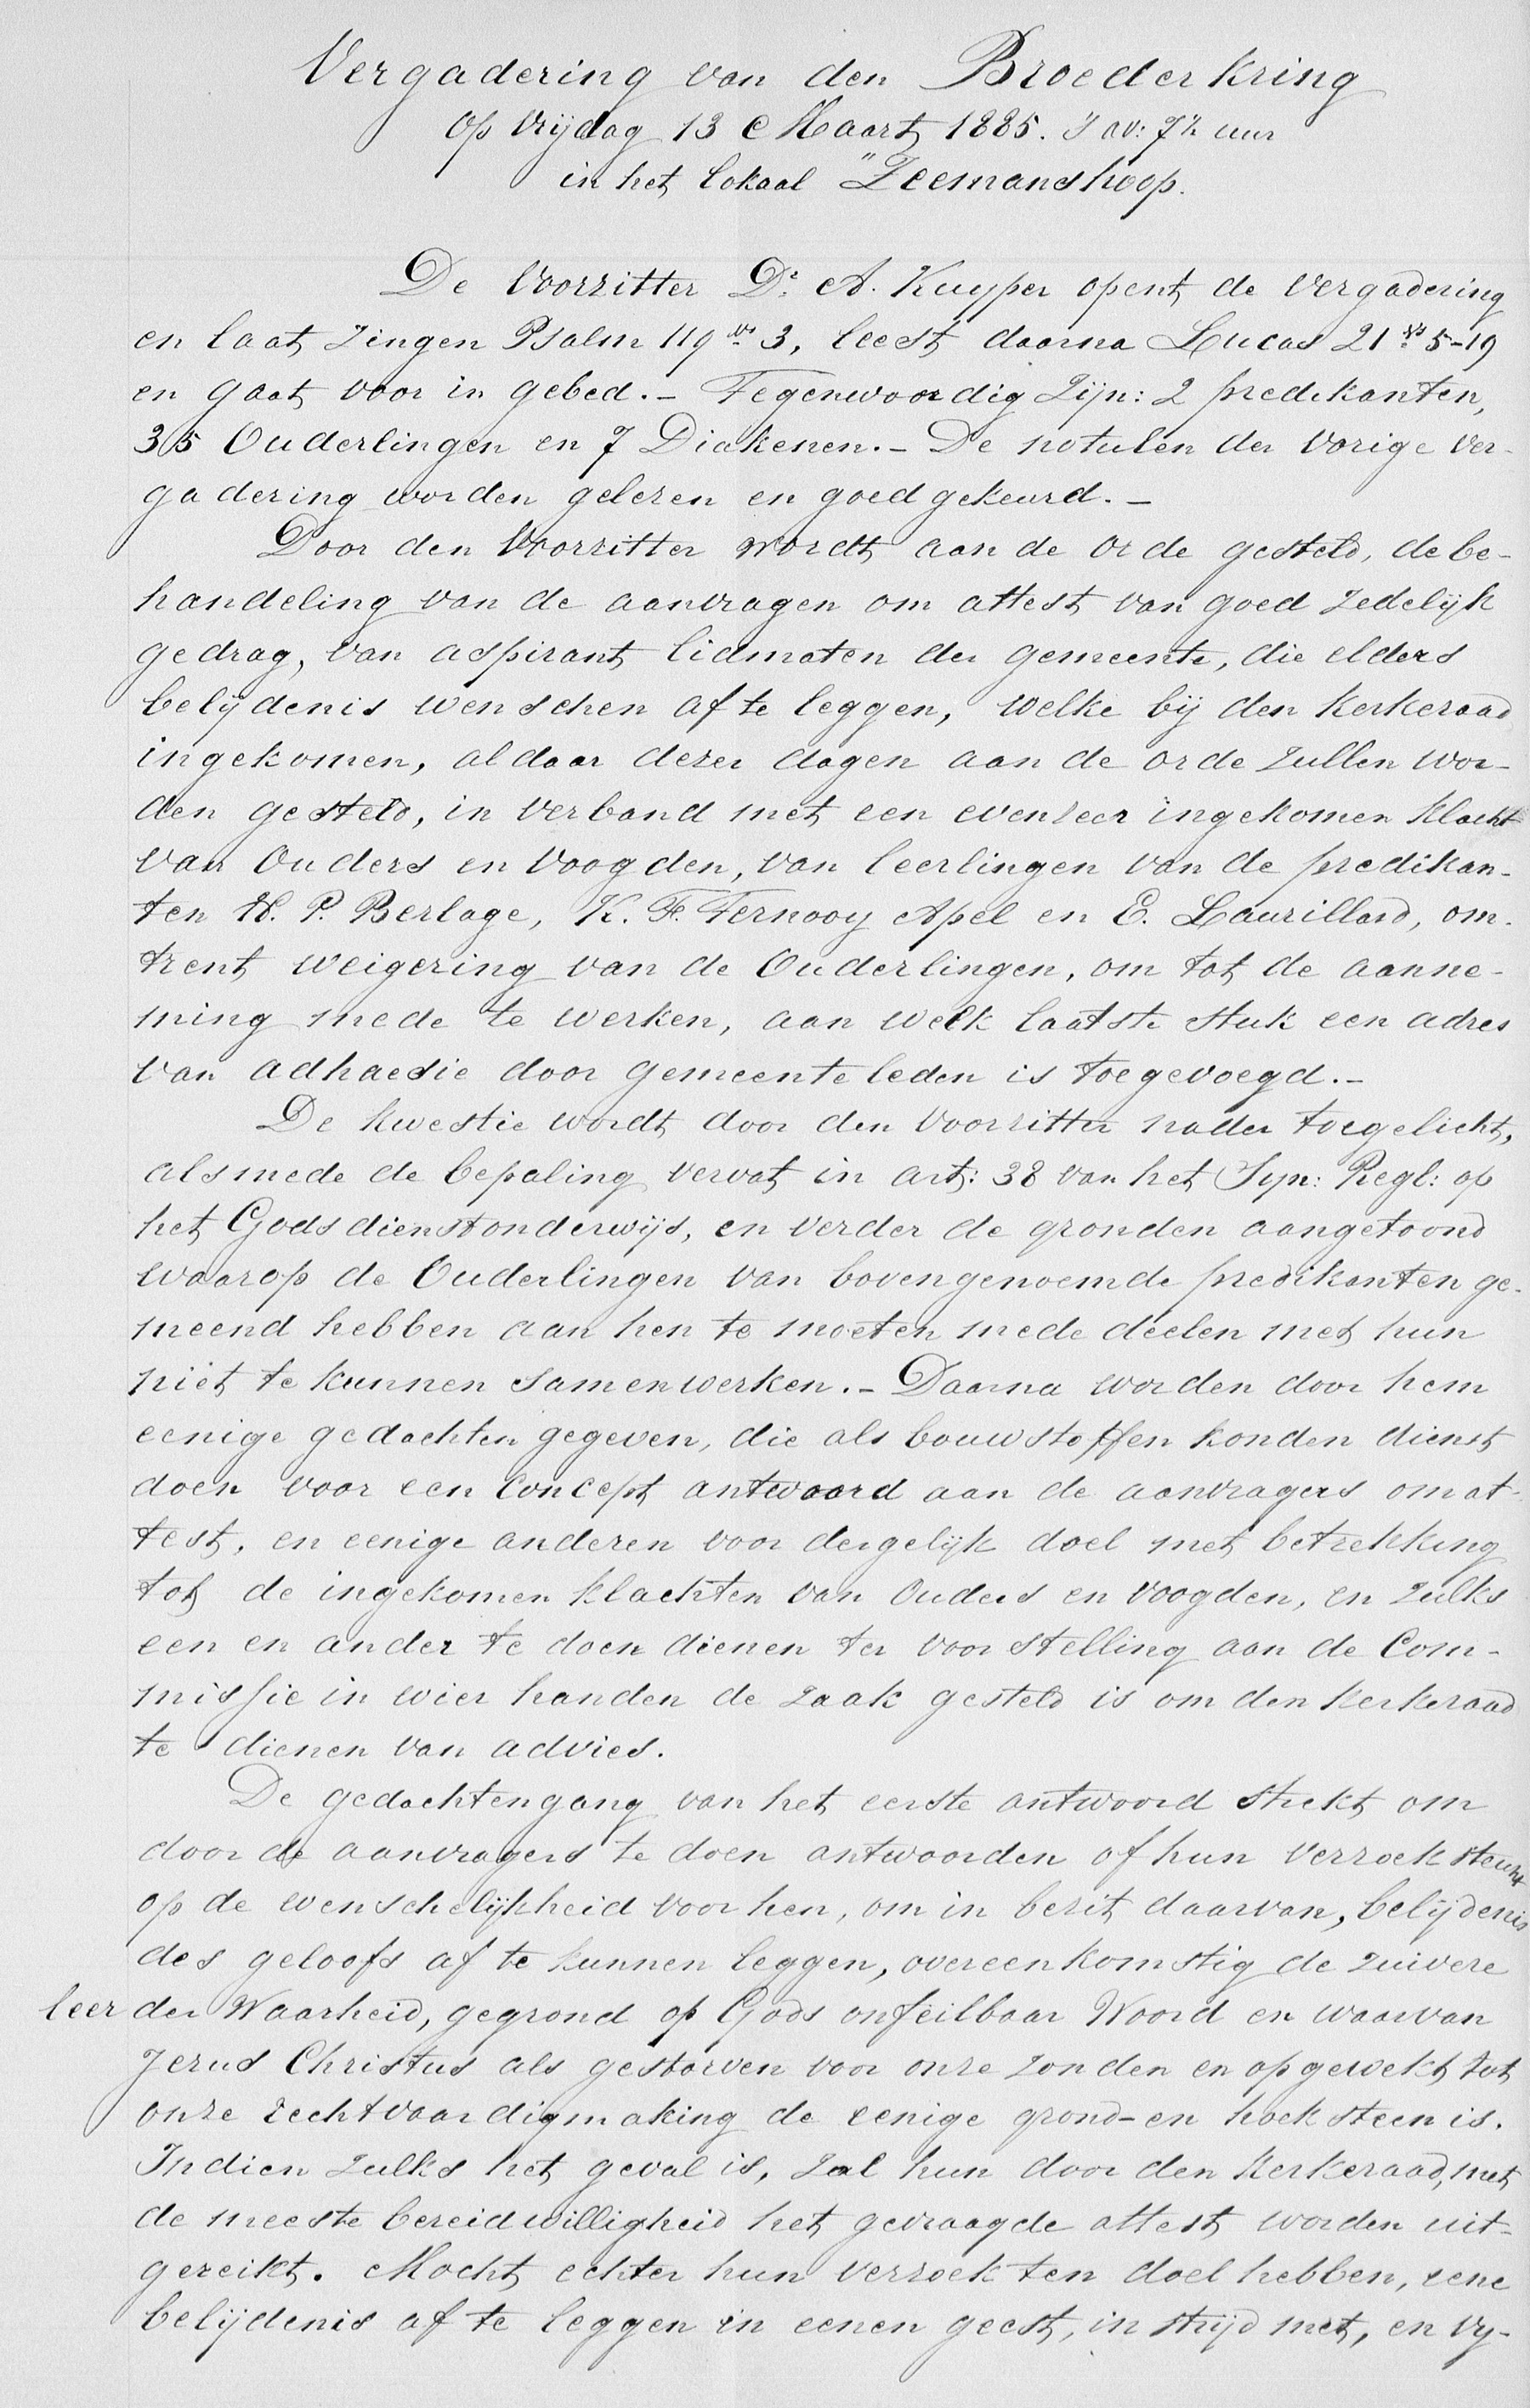 Vergadering van den Broederkring
op vrijdag 13 Maart 1885. 's av: 7½ uur
in het lokaal "Zeemanshoop.
De Voorzitter Dr. A. Kuyper opent de vergadering
en laat zingen Psalm 119 vs 3, leest daarna Lucas 21 vs 5-19
en gaat voor in gebed. - Tegenwoordig zijn: 2 predikanten,
35 Ouderlingen en 7 Diakenen. - De notulen der vorige ver-
gadering worden gelezen en goedgekeurd. -
Door den Voorzitter wordt aan de orde gesteld, de be-
handeling van de aanvragen om attest van goed zedelijk
gedrag, van aspirant lidmaten der gemeente, die elders
belijdenis wenschen af te leggen, welke bij den kerkeraad
ingekomen, aldaar dezer dagen aan de orde zullen wor-
den gesteld, in verband met een evenzeer ingekomen klacht
van Ouders en Voogden, van leerlingen van de predikan-
ten H. P. Berlage, K. F. Ternooy Apel en E. Laurillard, om-
trent weigering van de Ouderlingen, om tot de aanne-
ming mede te werken, aan welk laatste stuk een adres
van adhaesie door gemeenteleden is toegevoegd. -
De kwestie wordt door den voorzitter nader toegelicht,
alsmede de bepaling vervat in art: 38 van het Syn: Regl: op
het Godsdienstonderwijs, en verder de gronden aangetoond
waarop de Ouderlingen van bovengenoemde predikanten ge-
meend hebben aan hen te moeten mede deelen met hun
niet te kunnen samenwerken. - Daarna worden door hem
eenige gedachten gegeven, die als bouwstoffen konden dienst
doen voor een concept antwoord aan de aanvragers om at-
test, en eenige anderen voor dergelijk doel met betrekking
tot de ingekomen klachten van Ouders en voogden, en zulks
een en ander te doen dienen ter voorstelling aan de Com-
missie in wier handen de zaak gesteld is om den kerkeraad
te dienen van advies.
De gedachtengang van het eerste antwoord strekt om
door de aanvragers te doen antwoorden of hun verzoek steunt
op de wenschelijkheid voor hen, om in bezit daarvan, belijdenis
des geloofs af te kunnen leggen, overeenkomstig de zuivere
leer der Waarheid, gegrond op Gods onfeilbaar Woord en waarvan
Jezus Christus als gestorven voor onze zonden en opgewekt tot
onze rechtvaardigmaking de eenige grond- en hoeksteen is.
Indien zulks het geval is, zal hun door den kerkeraad, met
de meeste bereidwilligheid het gevraagde attest worden uit-
gereikt. Mocht echter hun verzoek ten doel hebben, eene
belijdenis af te leggen in eenen geest, in strijd met, en vy-